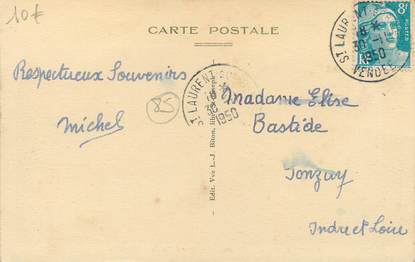 10€
CARTE POSTALE
8F
ST LAURENT
1950
VENDÉE
Respectueux Souvenirs
Michel
85
ST LAURENT
1950
Edit. Vve L.-J. Biton,
Madame Elise
Bastide
Sonzay
Indre et Loire